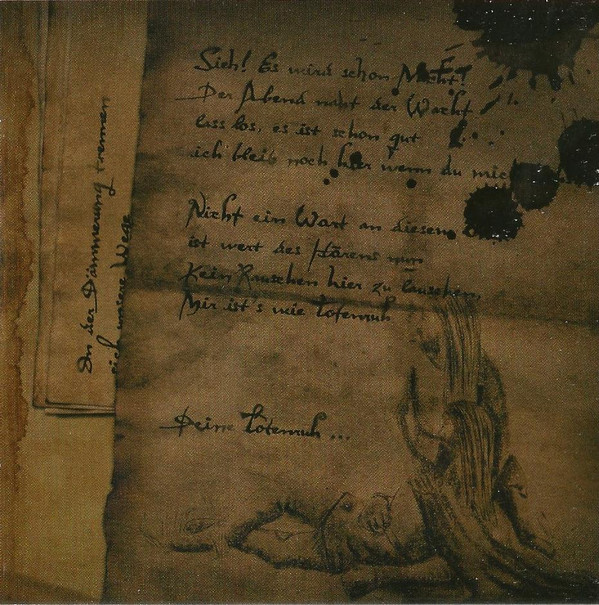 Sieh! Es wird schon Nacht!
Der Abend naht der Wacht
lass los, es ist schon gut
ich bleib noch hier wenn du mic
Nicht ein Wort an diesem
ist wert des Hörens nun
Kein Rauschen hier zu lauschen,
Mir ist's wie totenruh
Deine totenruh ...
In der Dämmerung trennen
sich unsere Wege